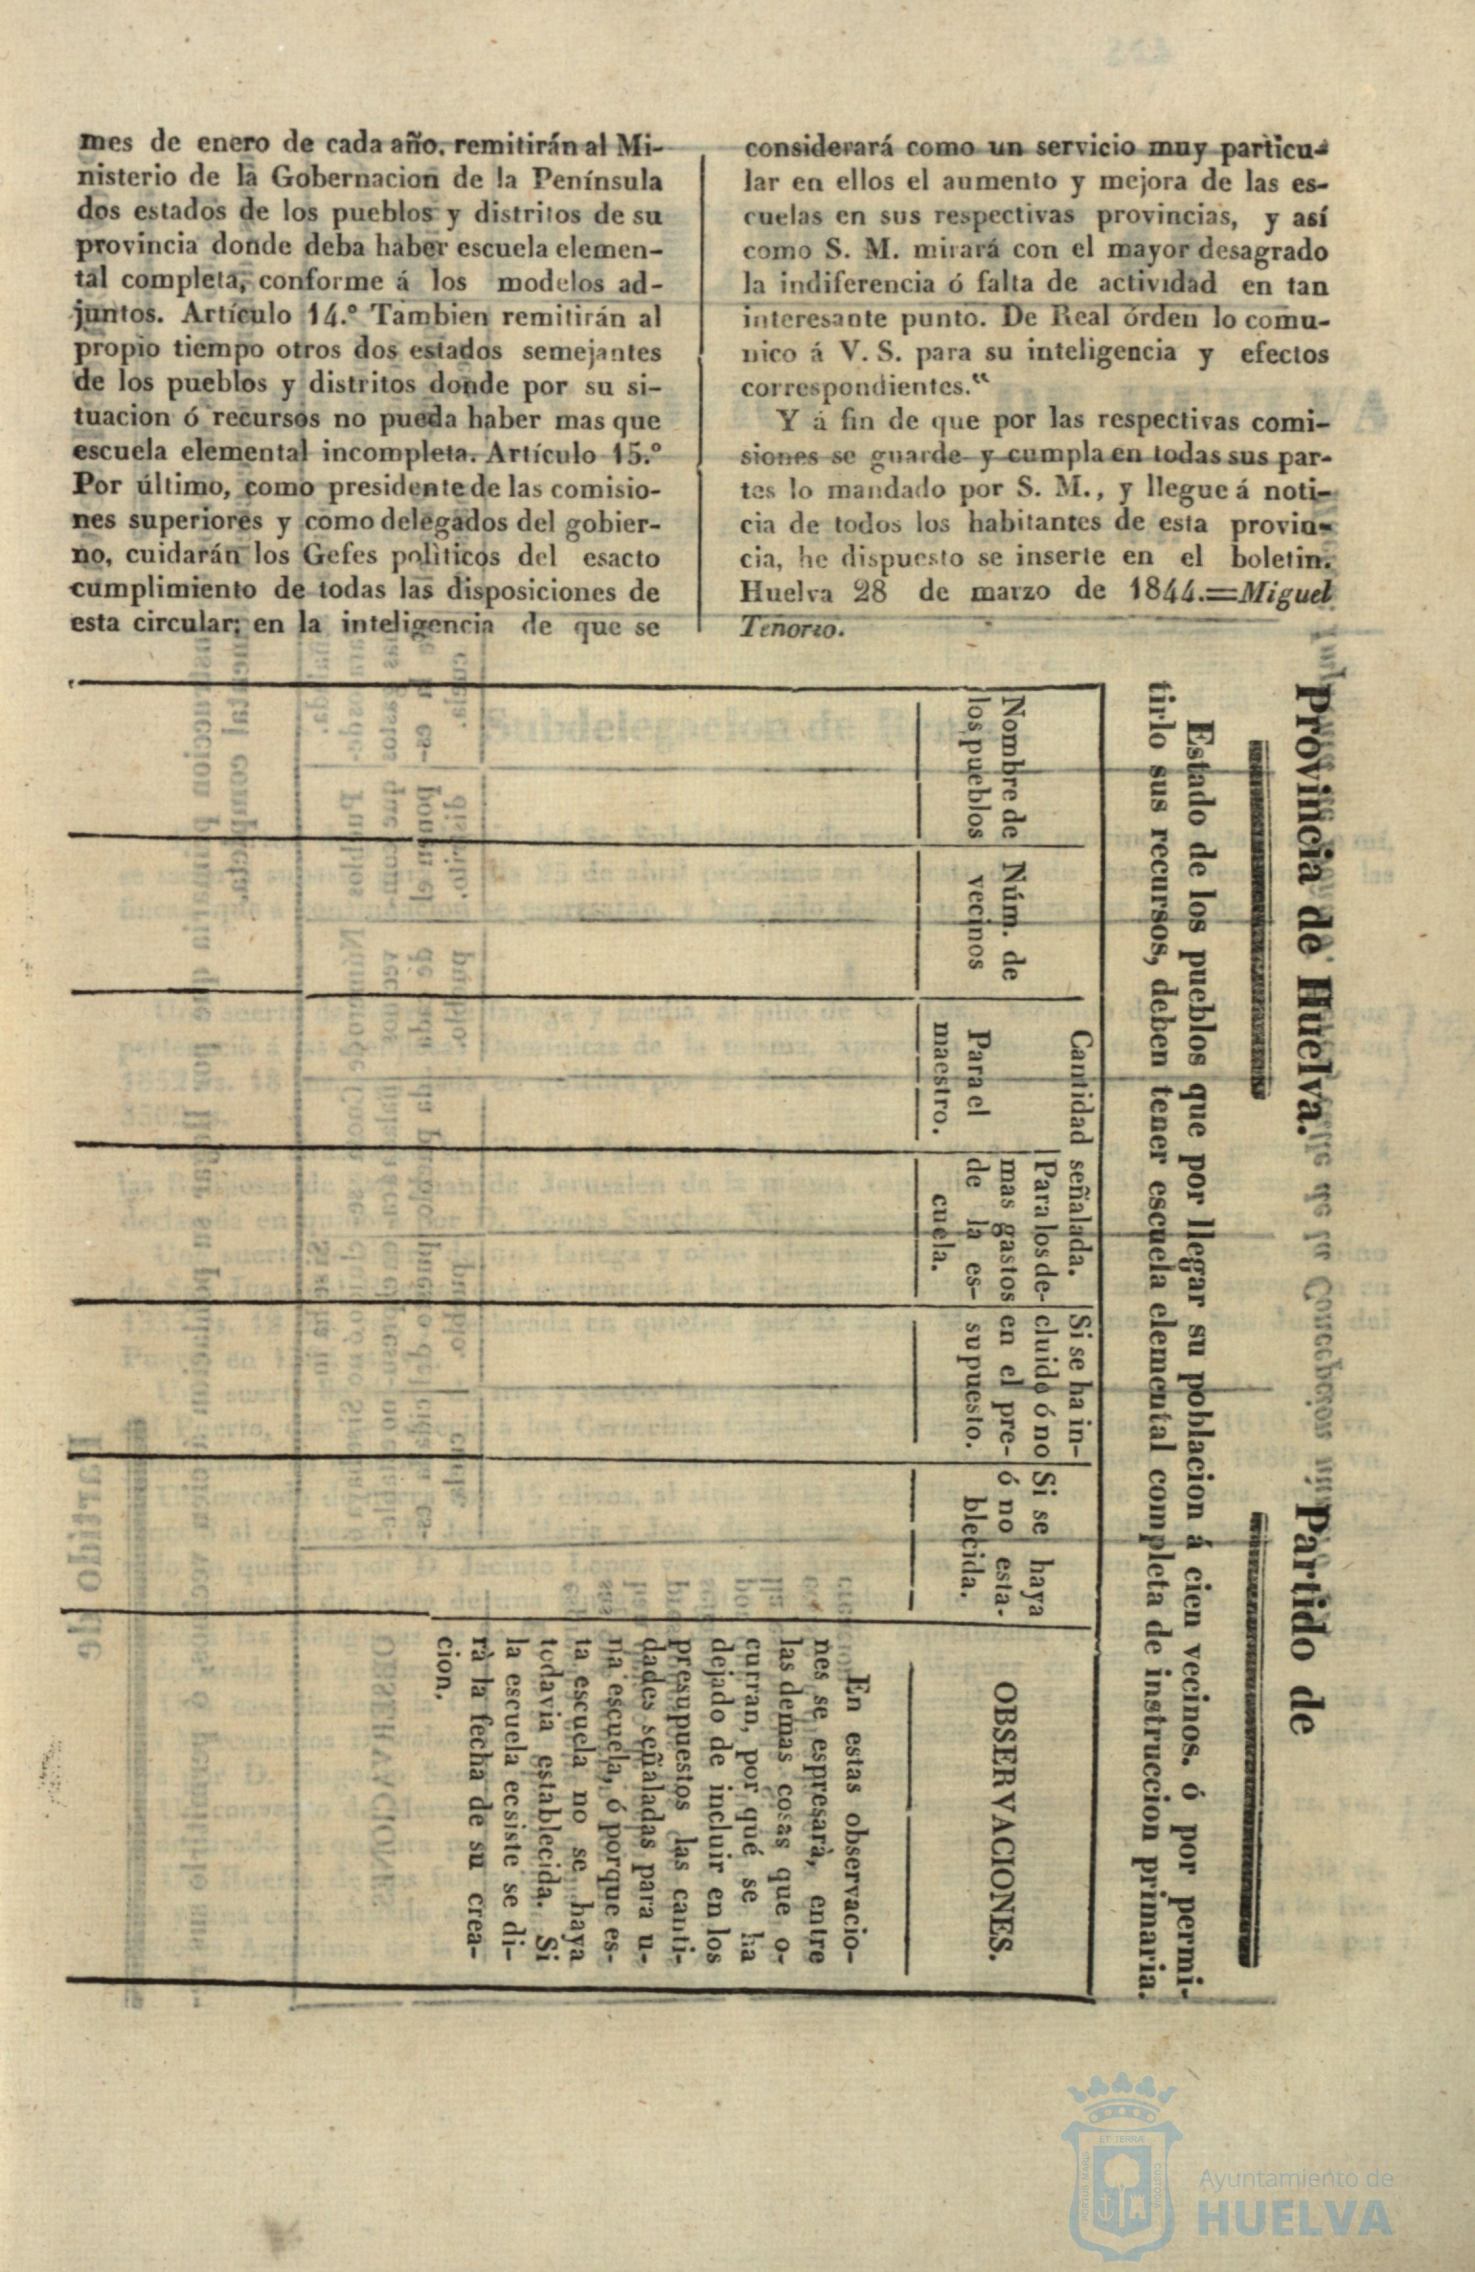 mes de enero de cada año. remitirán al Mi-
nisterio de la Gobernacion de la Península
dos estados de los pueblos y distritos de su
provincia donde deba haber escuela elemen-
tal completa, conforme á los modelos ad-
juntos. Artículo 14.º Tambien remitirán al
propio tiempo otros dos estados semejantes
de los pueblos y distritos donde por su si-
tuacion ó recursos no pueda haber mas que
escuela elemental incompleta. Artículo 15.º
Por último, como presidente de las comisio-
nes superiores y como delegados del gobier-
no, cuidarán los Gefes políticos del esacto
cumplimiento de todas las disposiciones de
esta circular; en la inteligencia de que se
considerará como un servicio muy particu-
lar en ellos el aumento y mejora de las es-
cuelas en sus respectivas provincias, y así
como S. M. mirará con el mayor desagrado
la indiferencia ó falta de actividad en tan
interesante punto. De Real órden lo comu-
nico á V. S. para su inteligencia y efectos
correspondientes.“
Y á fin de que por las respectivas comi-
siones se guarde y cumpla en todas sus par-
tes lo mandado por S. M., y llegue á noti-
cia de todos los habitantes de esta provin-
cia, he dispuesto se inserte en el boletin.
Huelva 28 de marzo de 1844.=Miguel
Tenorio.
Provincia de Huelva. Partido de
Estado de los pueblos que por llegar su poblacion á cien vecinos. ó por permi-
tirlo sus recursos, deben tener escuela elemental completa de instruccion primaria.
Nombre de
los pueblos
Núm. de
vecinos
Cantidad señalada.
Para el
maestro.
Para los de-
mas gastos
de la es-
cuela.
Si se ha in-
cluido ó no
en el pre-
supuesto.
Si se haya
ó no esta-
blecida.
OBSERVACIONES.
En estas observacio-
nes se espresarà, entre
las demas cosas que o-
curran, por qué se ha
dejado de incluir en los
presupuestos las canti-
dades señaladas para u-
na escuela, ó porque es-
ta escuela no se haya
todavia establecida. Si
la escuela ecsiste se di-
rà la fecha de su crea-
cion.
ET TERRA
PORTUS MARIS
CUSTODIA
Ayuntamiento de
HUELVA